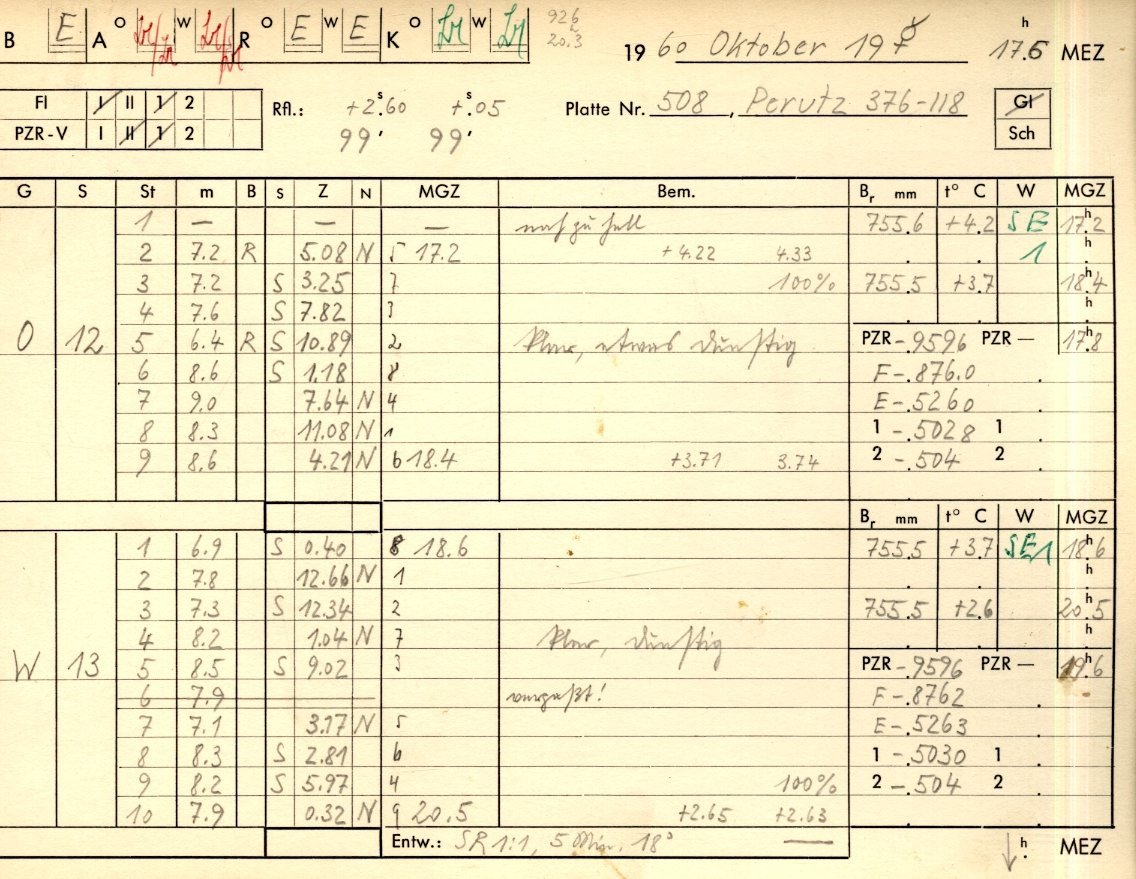 B E A O W R O E W E K O W 926 20.3 19 60 Oktober 19 17.6 h MEZ
FI I II 1 2 Rfl.: +2.60 s +.05 s Platte Nr. 508, Perutz 376-118 Gl
PZR-V I II 1 2 99' 99' Sch
G S St m B S Z N MGZ Bem. Br mm t° C W MGZ
1 — — — noch zu hell 755.6 +4.2 SE 17.2 h
2 7.2 R 5.08 N 5 17.2 +4.22 4.33 . . 1 h
3 7.2 S 3.25 7 100% 755.5 +3.7 18.4 h
4 7.6 S 7.82 3 . . h
O 12 5 6.4 R S 10.89 2 klar, etwas dunstig PZR -.9596 PZR — 17.8 h
6 8.6 S 1.18 8 F -.8760 .
7 9.0 7.64 N 4 E -.5260 .
8 8.3 11.08 N 1 1 -.5028 1 .
9 8.6 4.21 N 6 18.4 +3.71 3.74 2 -.504 2 .
Br mm t° C W MGZ
1 6.9 S 0.40 8 18.6 755.5 +3.7 SE 1 18.6 h
2 7.8 12.66 N 1 . . h
3 7.3 S 12.34 2 755.5 +2.6 20.5 h
4 8.2 1.04 N 7 klar, dunstig . . h
W 13 5 8.5 S 9.02 3 PZR -.9596 PZR — 19.6 h
6 7.9 — verpaßt! F -.8762 .
7 7.1 3.17 N 5 E -.5263 .
8 8.3 S 2.81 6 1 -.5030 1 .
9 8.2 S 5.97 4 100% 2 -.504 2 .
10 7.9 0.32 N 9 20.5 +2.65 +2.63 .
Entw.: SR 1:1, 5 Min. 18° — h MEZ